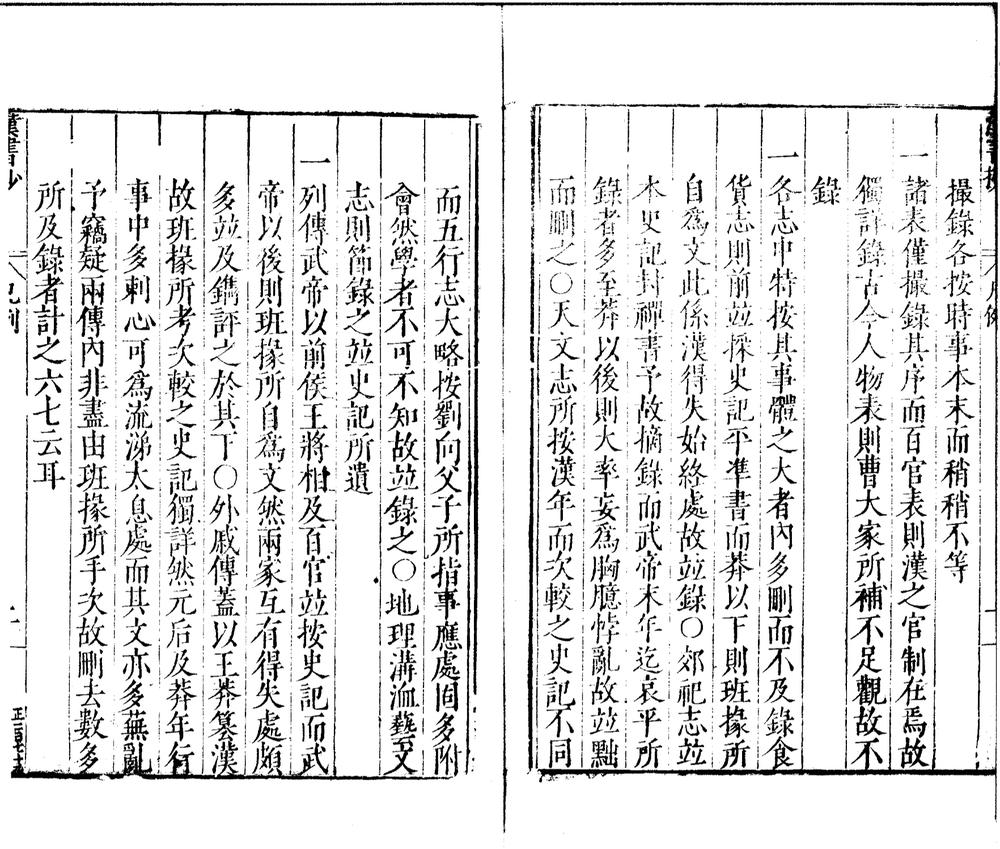 撮錄各按時事本末而稍稍不等
一諸表僅撮錄其序而百官表則漢之官制在焉故
獨詳錄古今人物表則曹大家所補不足觀故不
錄
一各志中特按其事體之大者內多刪而不及錄食
貨志則前並採史記平準書而莽以下則班掾所
自爲文此係漢得失始終處故並錄○郊祀志並
本史記封禪書予故摘錄而武帝末年迄哀平所
錄者多至莽以後則大率妄爲胸臆悖亂故並黜
而刪之○天文志所按漢年而次較之史記不同
而五行志大略按劉向父子所指事應處固多附
會然學者不可不知故並錄之○地理溝洫藝文
志則節錄之並史記所遺
一列傳武帝以前侯王將相及百官並按史記而武
帝以後則班掾所自爲文然兩家互有得失處頗
多並及鐫評之於其下○外戚傳蓋以王莽篡漢
故班掾所考次較之史記獨詳然元后及莽年行
事中多刺心可爲流涕太息處而其文亦多蕪亂
予竊疑兩傳內非盡由班掾所手次故刪去數多
所及錄者計之六七云耳
漢書抄
凡例